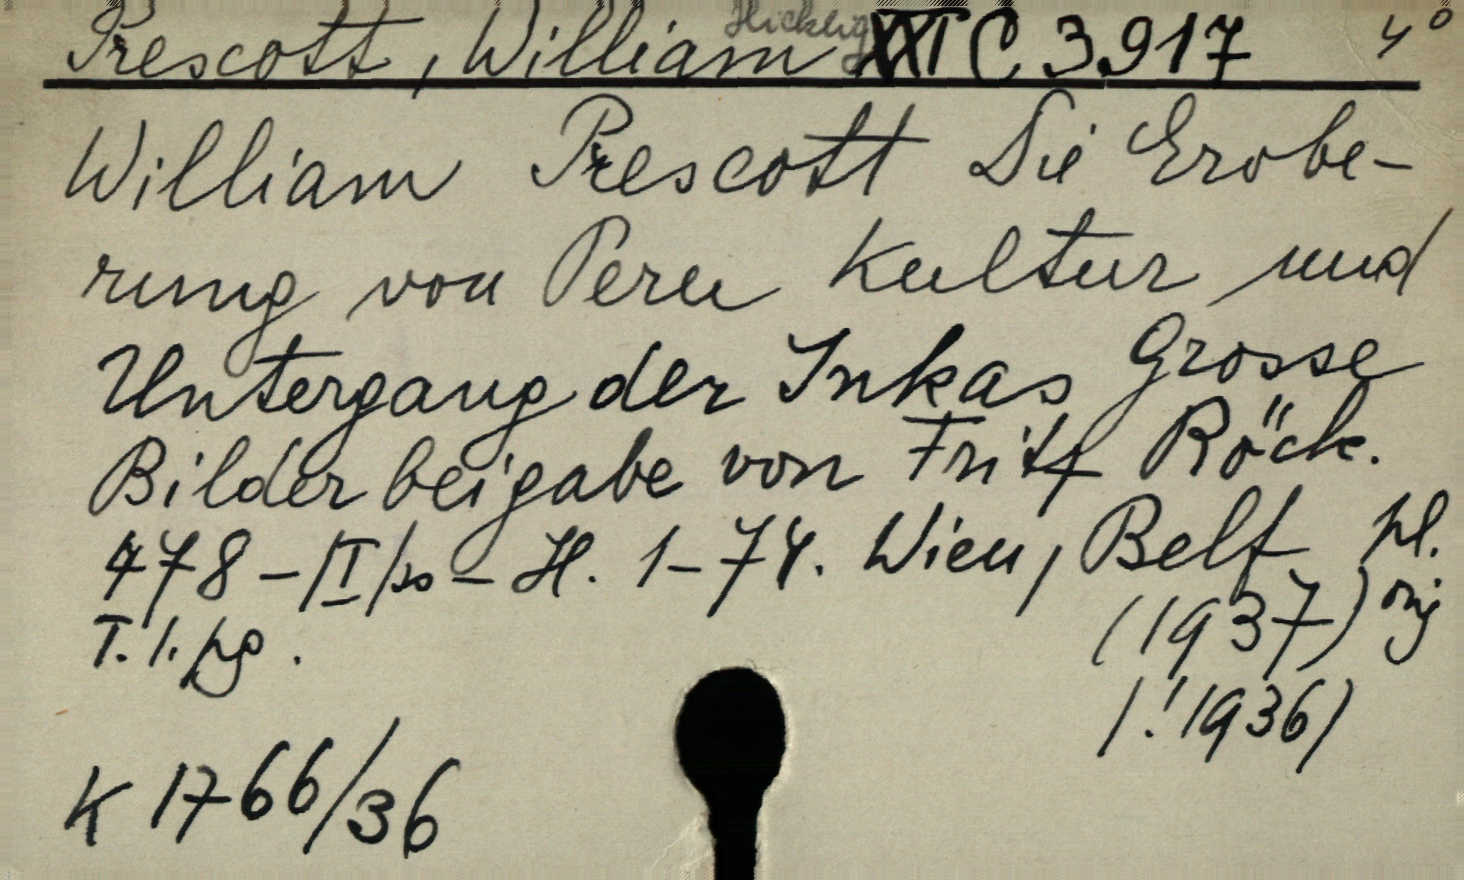 Prescott, William Hickling XXI C 3.917 4°
William Prescott Die Erobe-
rung von Peru Kultur und
Untergang der Inkas Grosse
Bilderbeigabe von Fritz Röck.
478 - /II/ - H. 1-74. Wien, Belf pl.
T. 1. pg. (1937) orig
(! 1936)
K 1766/36